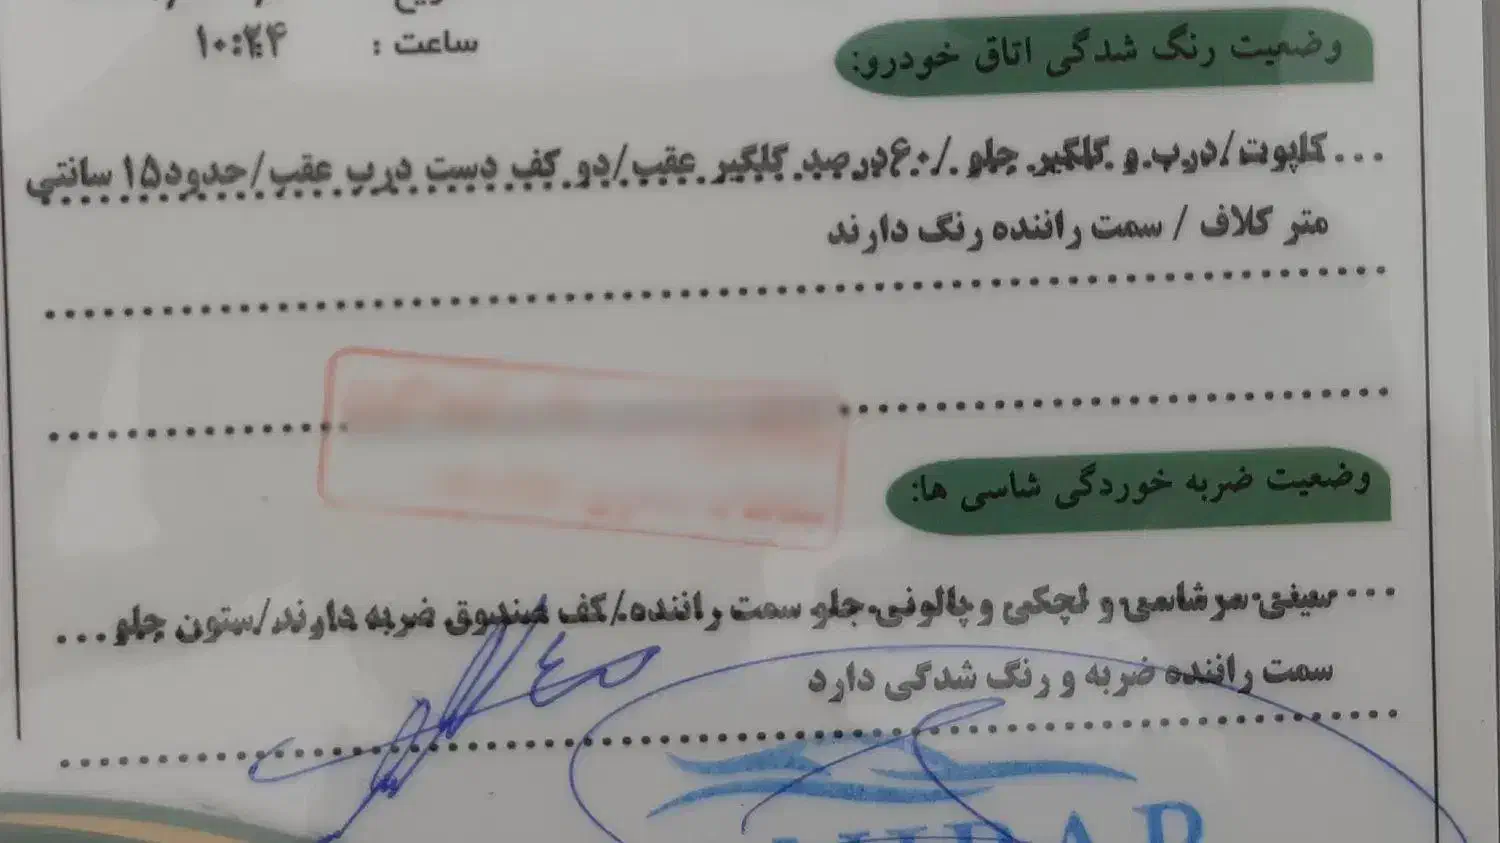 ساعت : ۱۰:۲۴
وضعیت رنگ شدگی اتاق خودرو:
... کاپوت/درب و گلگیر جلو /۶۰درصد گلگیر عقب/دو کف دست درب عقب/حدود۱۵ سانتی
متر کلاف / سمت راننده رنگ دارند
وضعیت ضربه خوردگی شاسی ها:
... سینی سرشاسی و لچکی و پالونی جلو سمت راننده/کف صندوق ضربه دارند/ستون جلو ...
سمت راننده ضربه و رنگ شدگی دارد